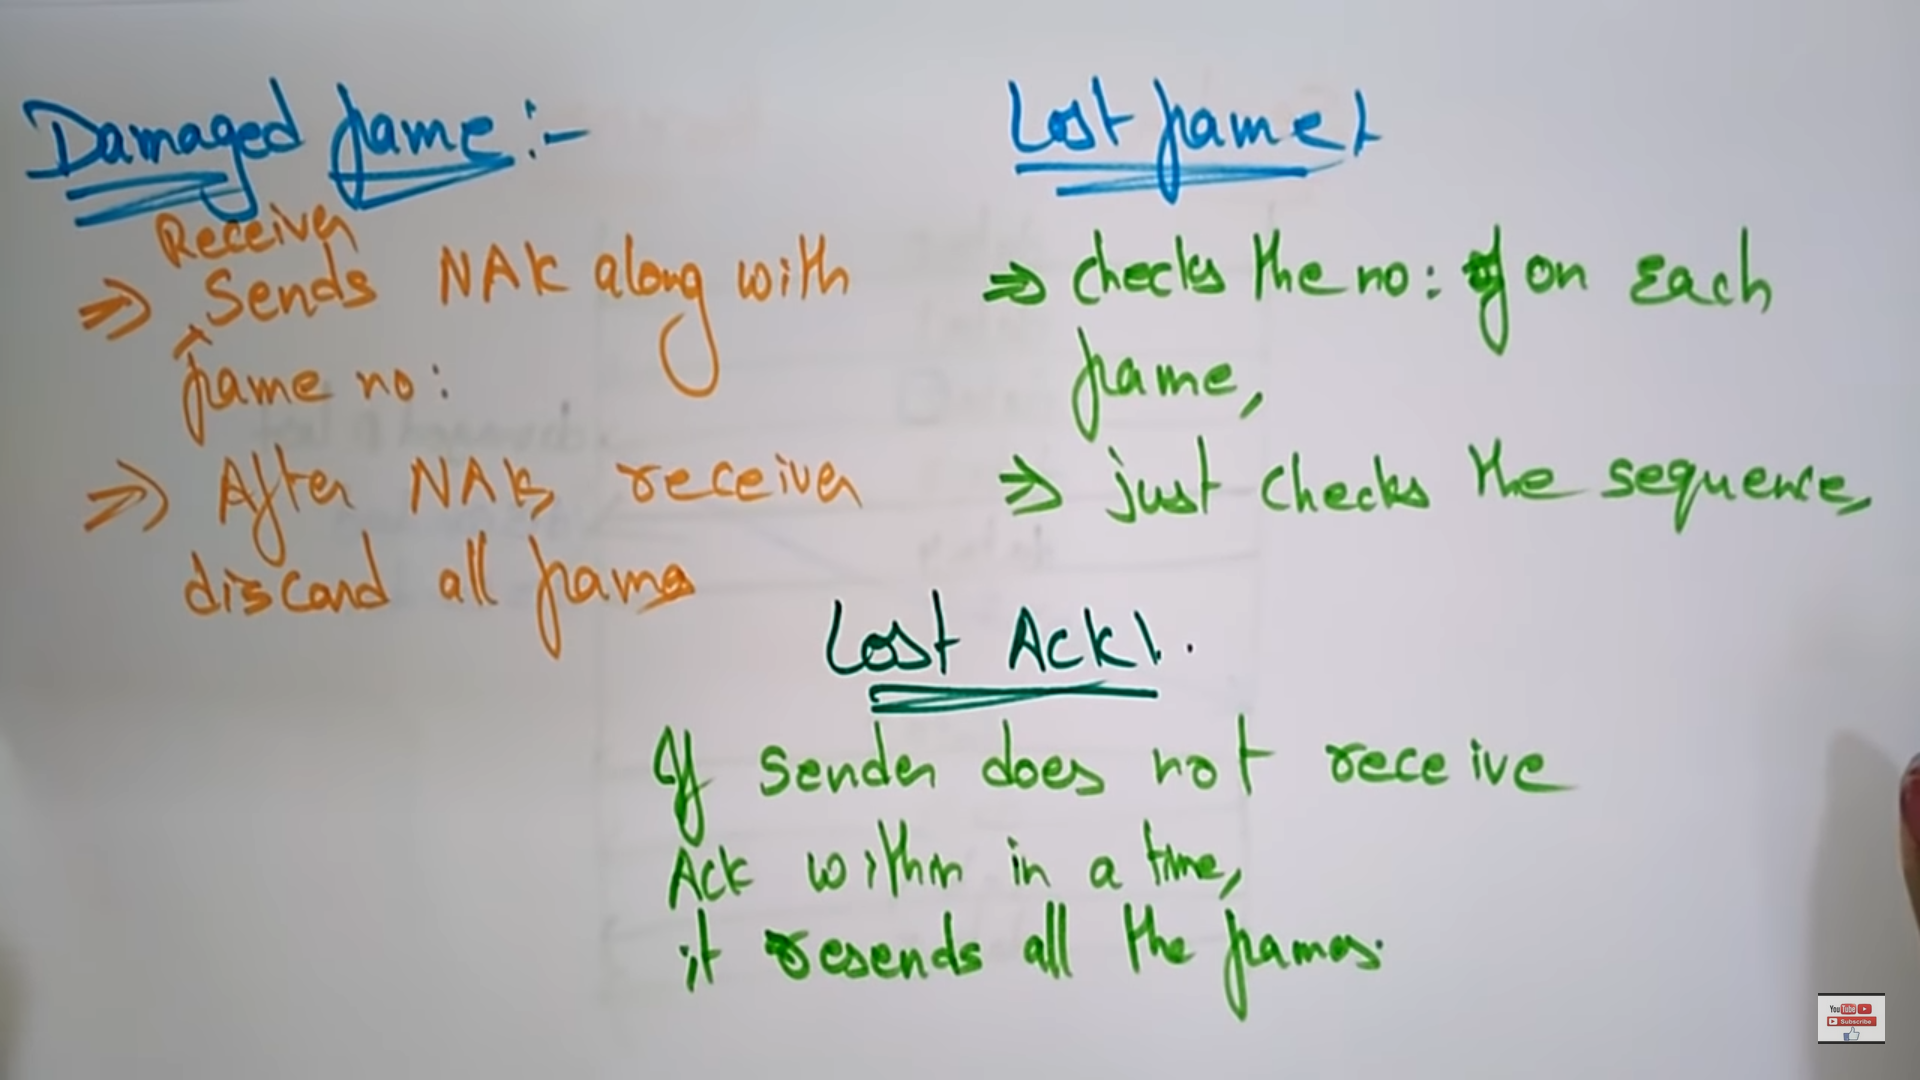 Damaged frame:-
Receiver
⇒ Sends NAK along with
frame no:
⇒ After NAK, receiver
discard all frames
Lost frame:
⇒ checks the no: of on Each
frame,
⇒ just checks the sequence,
Lost Ack:.
If sender does not receive
Ack within in a time,
it resends all the frames.
YouTube
Subscribe